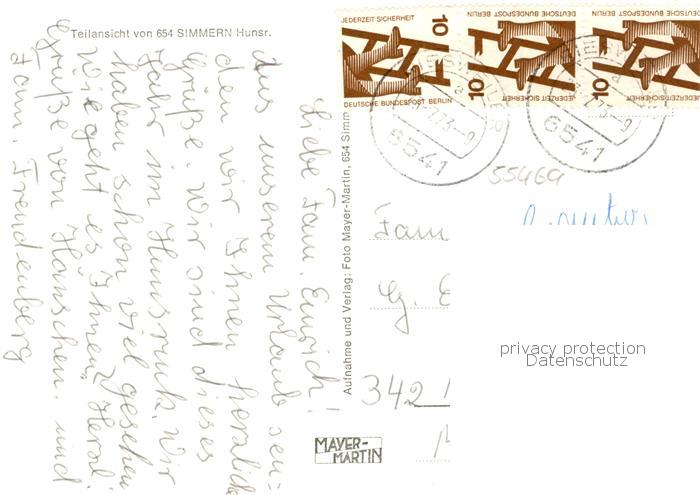 Teilansicht von 654 SIMMERN Hunsr.
Liebe Fam. Emrich!
Aus unserem Urlaub sen-
den wir Ihnen herzliche
Grüße. Wir sind dieses
Jahr im Hunsrück. Wir
haben schon viel gesehen
Wie geht es Ihnen? Herzl.
Grüße von Hänschen. und
Fam. Freudenberg
Aufnahme und Verlag: Foto Mayer-Martin, 654 Simm
MAYER-
MARTIN
JEDERZEIT SICHERHEIT
10
DEUTSCHE BUNDESPOST BERLIN
JEDERZEIT SICHERHEIT
10
DEUTSCHE BUNDESPOST BERLIN
JEDERZEIT SICHERHEIT
10
DEUTSCHE BUNDESPOST BERLIN
6541
6541
55469
Fam
G. E
342
privacy protection
Datenschutz